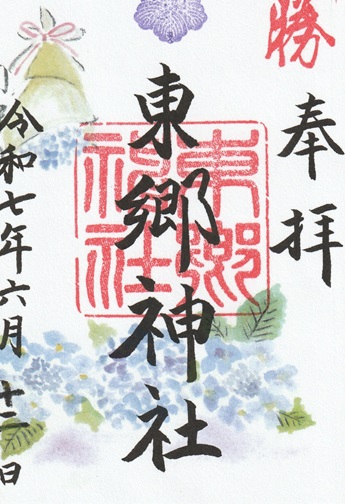 勝
奉拝
東郷神社
東郷
神社
令和七年六月十二日